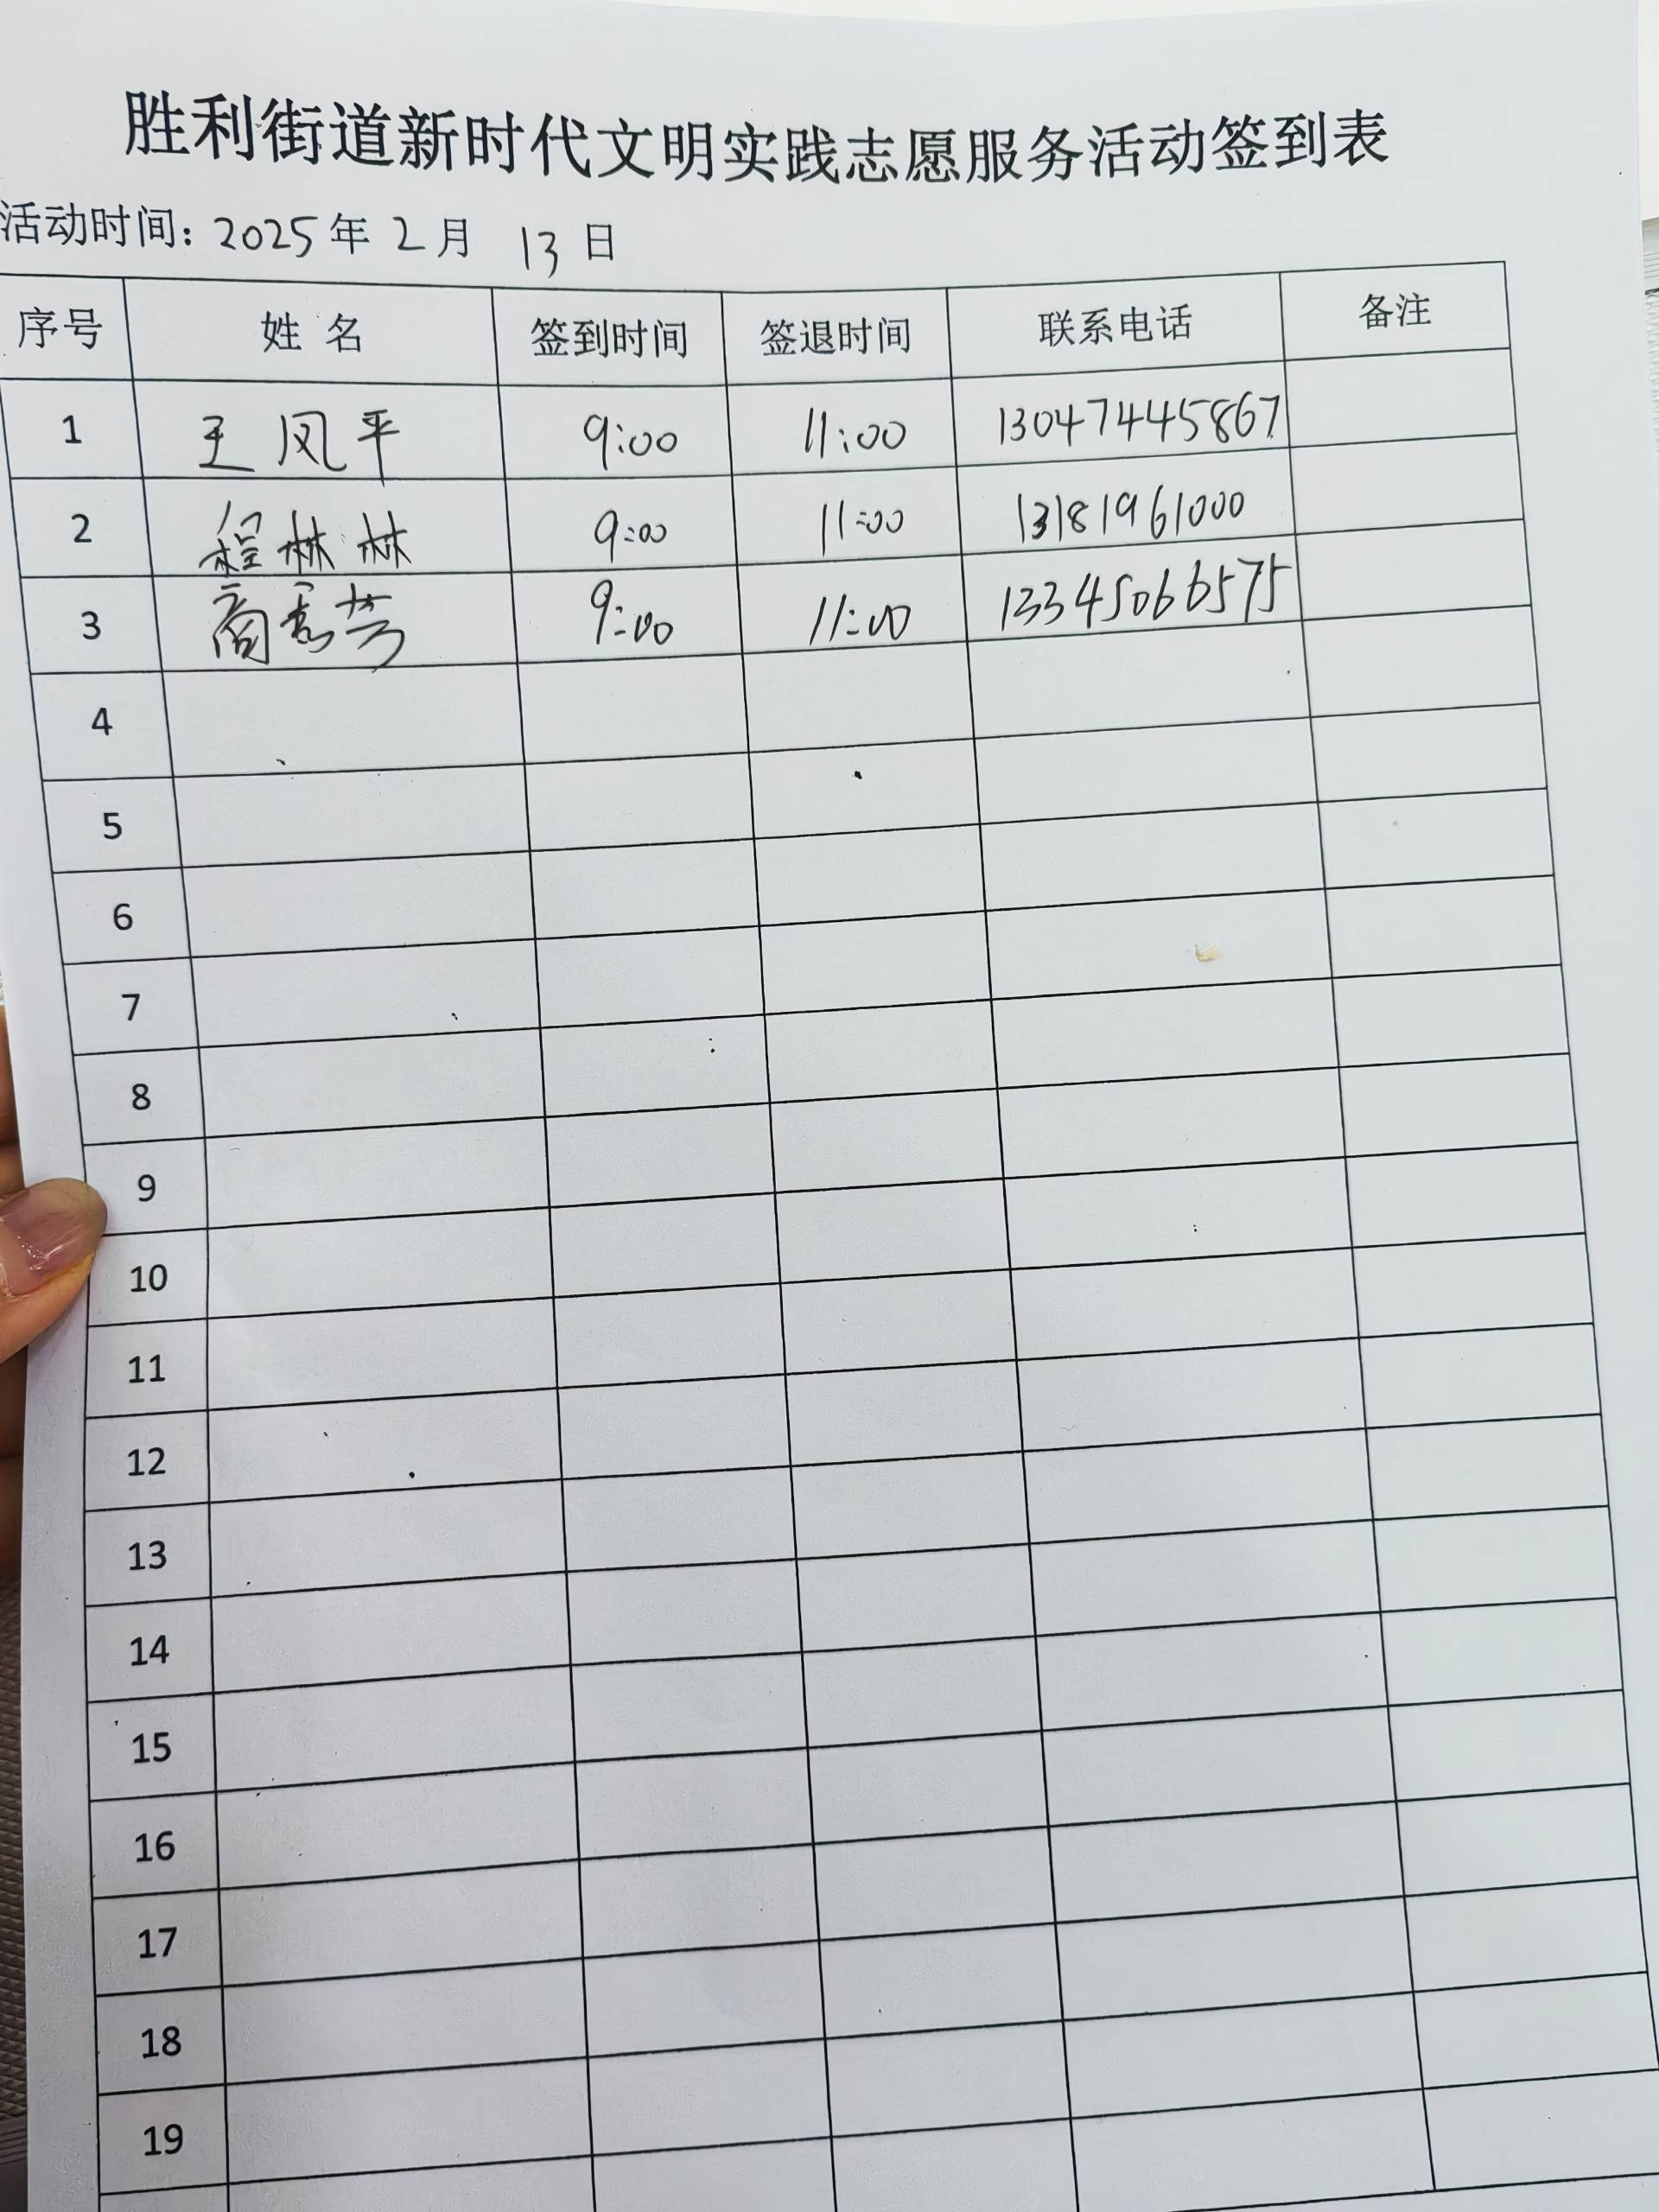 胜利街道新时代文明实践志愿服务活动签到表
活动时间: 2025 年 2 月 13 日
序号 姓 名 签到时间 签退时间 联系电话 备注
1 王 凤 平 9:00 11:00 13047445867
2 程 林 林 9:00 11:00 13181961000
3 商秀芳 9:00 11:00 13345066575
4
5
6
7
8
9
10
11
12
13
14
15
16
17
18
19